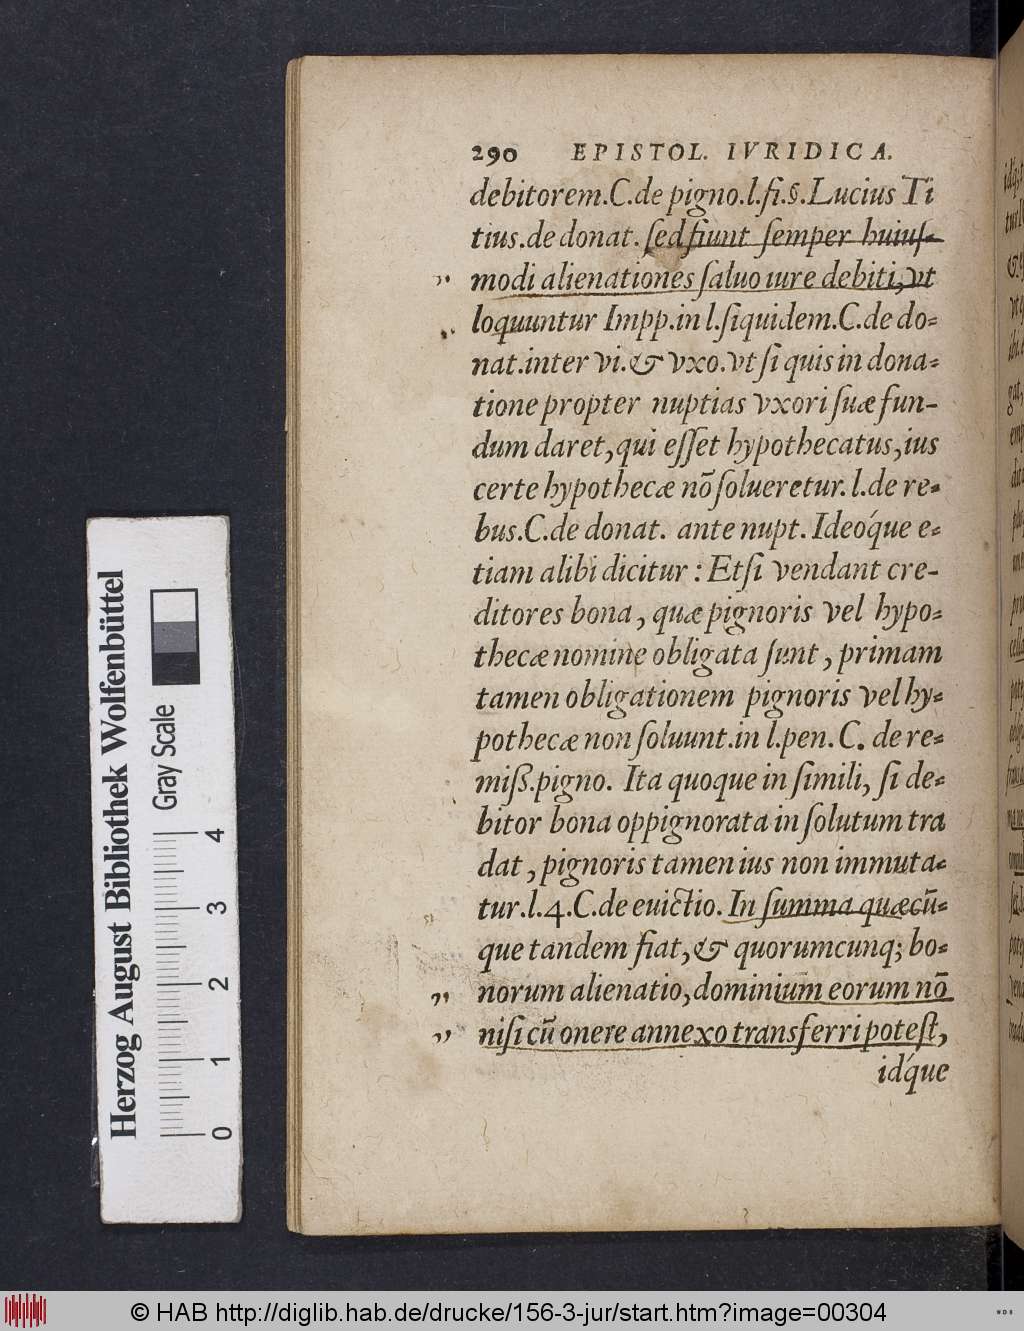 290 EPISTOL. IVRIDICA.
debitorem.C.de pigno.l.fi.§.Lucius Ti
tius.de donat. ſed fiunt ſemper huiuſ-
modi alienationes ſaluo iure debiti, vt
loquuntur Impp.in l.ſiquidem.C.de do-
nat.inter vi.& vxo.vt ſi quis in dona-
tione propter nuptias vxori ſuæ fun-
dum daret, qui eſſet hypothecatus, ius
certe hypothecæ nō ſolueretur. l.de re-
bus.C.de donat. ante nupt. Ideóque e-
tiam alibi dicitur : Etſi vendant cre-
ditores bona, quæ pignoris vel hypo-
thecæ nomine obligata ſunt, primam
tamen obligationem pignoris vel hy-
pothecæ non ſoluunt.in l.pen. C. de re-
miß.pigno. Ita quoque in ſimili, ſi de-
bitor bona oppignorata in ſolutum tra
dat, pignoris tamen ius non immuta-
tur.l.4.C.de euictio. In ſumma quæcū-
que tandem fiat, & quorumcunq; bo-
norum alienatio, dominium eorum nō
niſi cū onere annexo transferri poteſt,
idque
Herzog August Bibliothek Wolfenbüttel
Gray Scale
0 1 2 3 4
© HAB http://diglib.hab.de/drucke/156-3-jur/start.htm?image=00304